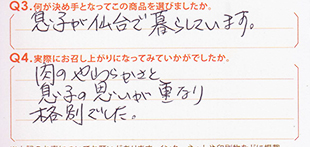 Q3.何が決め手となってこの商品を選びましたか。
息子が仙台で暮らしています。
Q4.実際にお召し上がりになってみていかがでしたか。
肉のやわらかさと
息子の思いが重なり
格別でした。